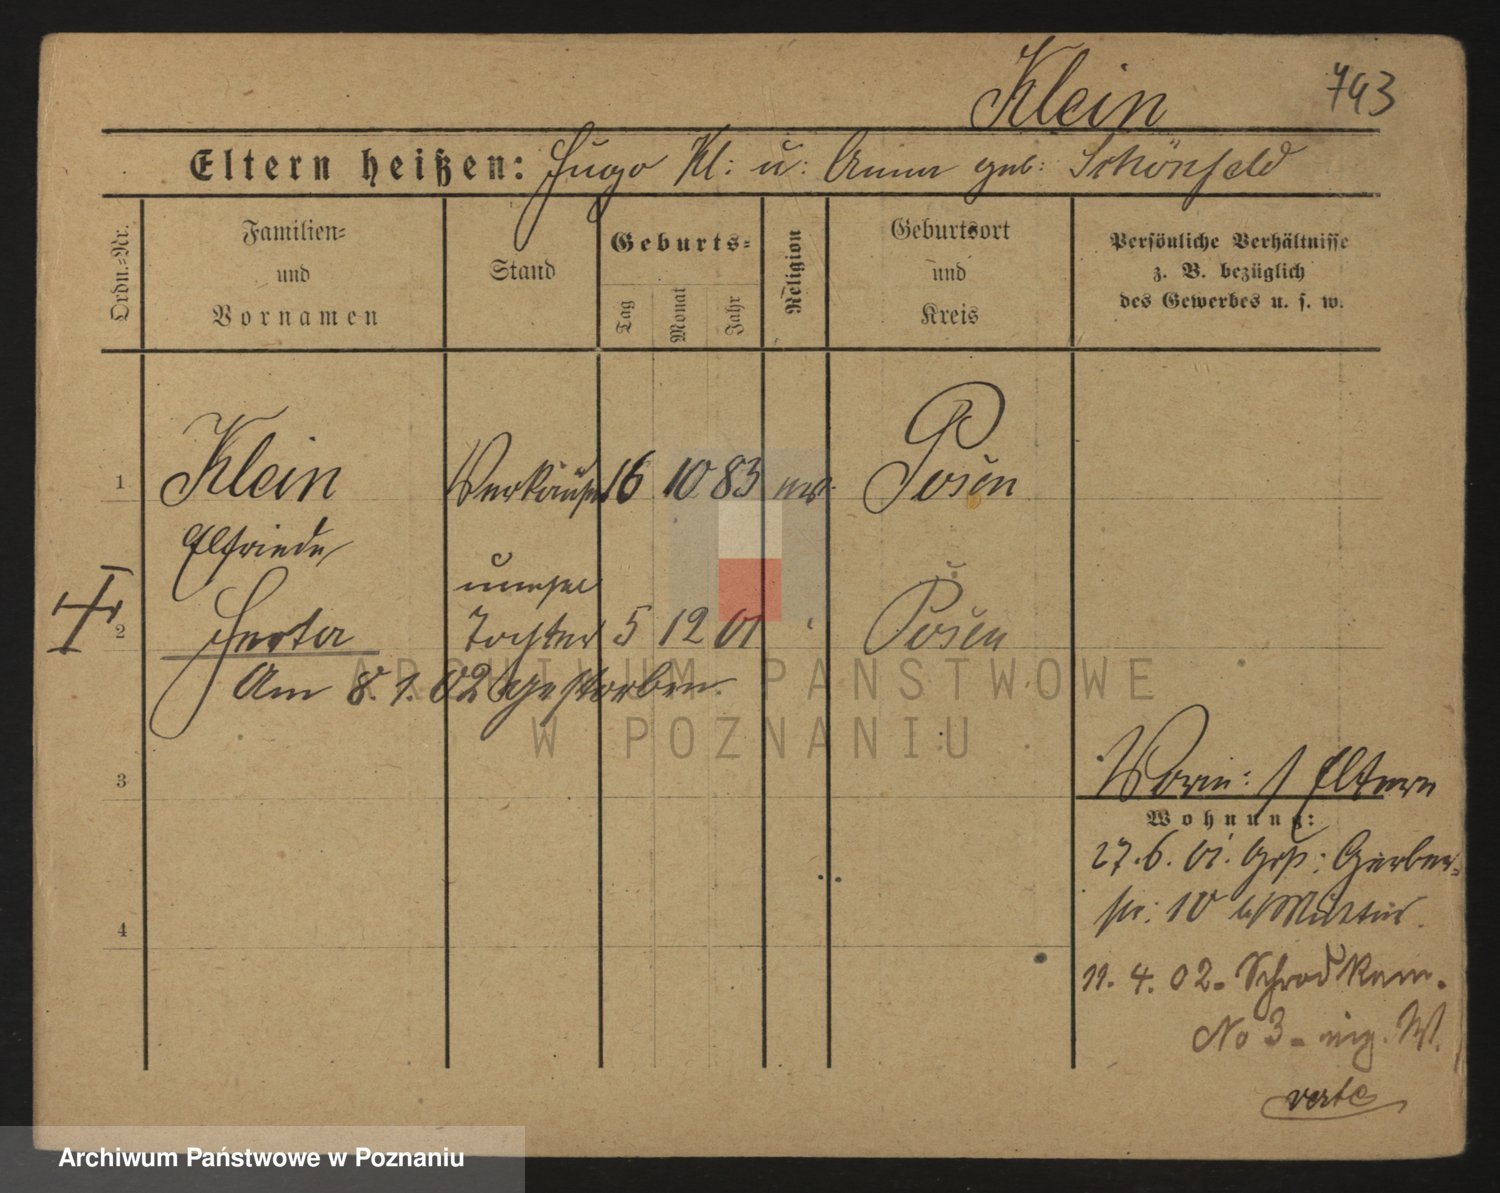 Klein 793
Eltern heißen: Hugo Kl: u: Anna geb: Schönfeld
Ordn.-Nr.
Familien-
und
Vornamen
Stand
Geburts-
Tag
Monat
Jahr
Religion
Geburtsort
und
Kreis
Persönliche Verhältnisse
z. B. bezüglich
des Gewerbes u. s. w.
1 Klein Verkäufer 16 10 83 Posen
Elfriede
unehel
2 Herta Tochter 5 12 01 Posen
Am 8. 1. 02 gestorben.
3
4
Vorw: / Eltern
Wohnung:
27. 6. 01. Gerber-
str: 10 b/
11. 4. 02. Schrodkam.
No 3 - eig. W.
verte
ARCHIWUM PAŃSTWOWE
W POZNANIU
Archiwum Państwowe w Poznaniu